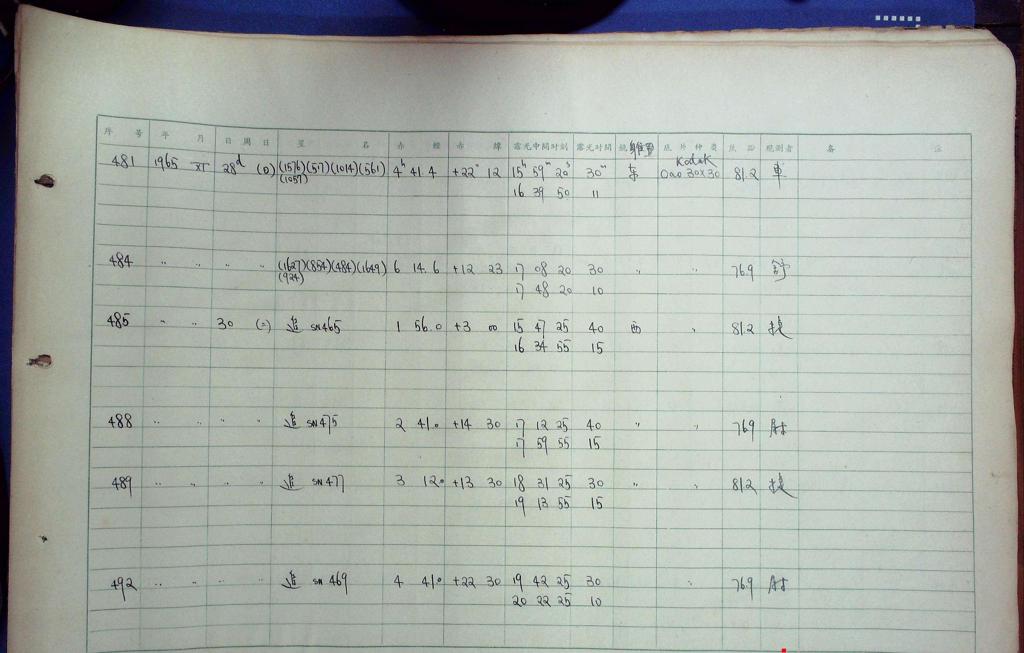 序号 年 月 日 周日 星 名 赤 經 赤 緯 露光中間时刻 露光时间 鏡 底片种类 焦距 观测者 备 注
481 1965 XI 28d (日) (1576)(57)(1014)(561) 4h 41.4 +22° 12 15h 59m 20s 30m 东 Kodak 0ao 30x30 81.2
(1057) 16 39 50 11
484 〃 〃 〃 〃 (1627)(854)(484)(1649) 6 14.6 +12 23 17 08 20 30 〃 〃 76.9
(924) 17 48 20 10
485 〃 〃 30 (二) 追 SN465 1 56.0 +3 00 15 47 25 40 西 〃 81.2
16 34 55 15
488 〃 〃 〃 〃 追 SN475 2 41.0 +14 30 17 12 25 40 〃 〃 76.9
17 59 55 15
489 〃 〃 〃 〃 追 SN477 3 12.0 +13 30 18 31 25 30 〃 81.2
19 13 55 15
492 〃 〃 〃 〃 追 SN469 4 41.0 +22 30 19 42 25 30 〃 76.9
20 22 25 10